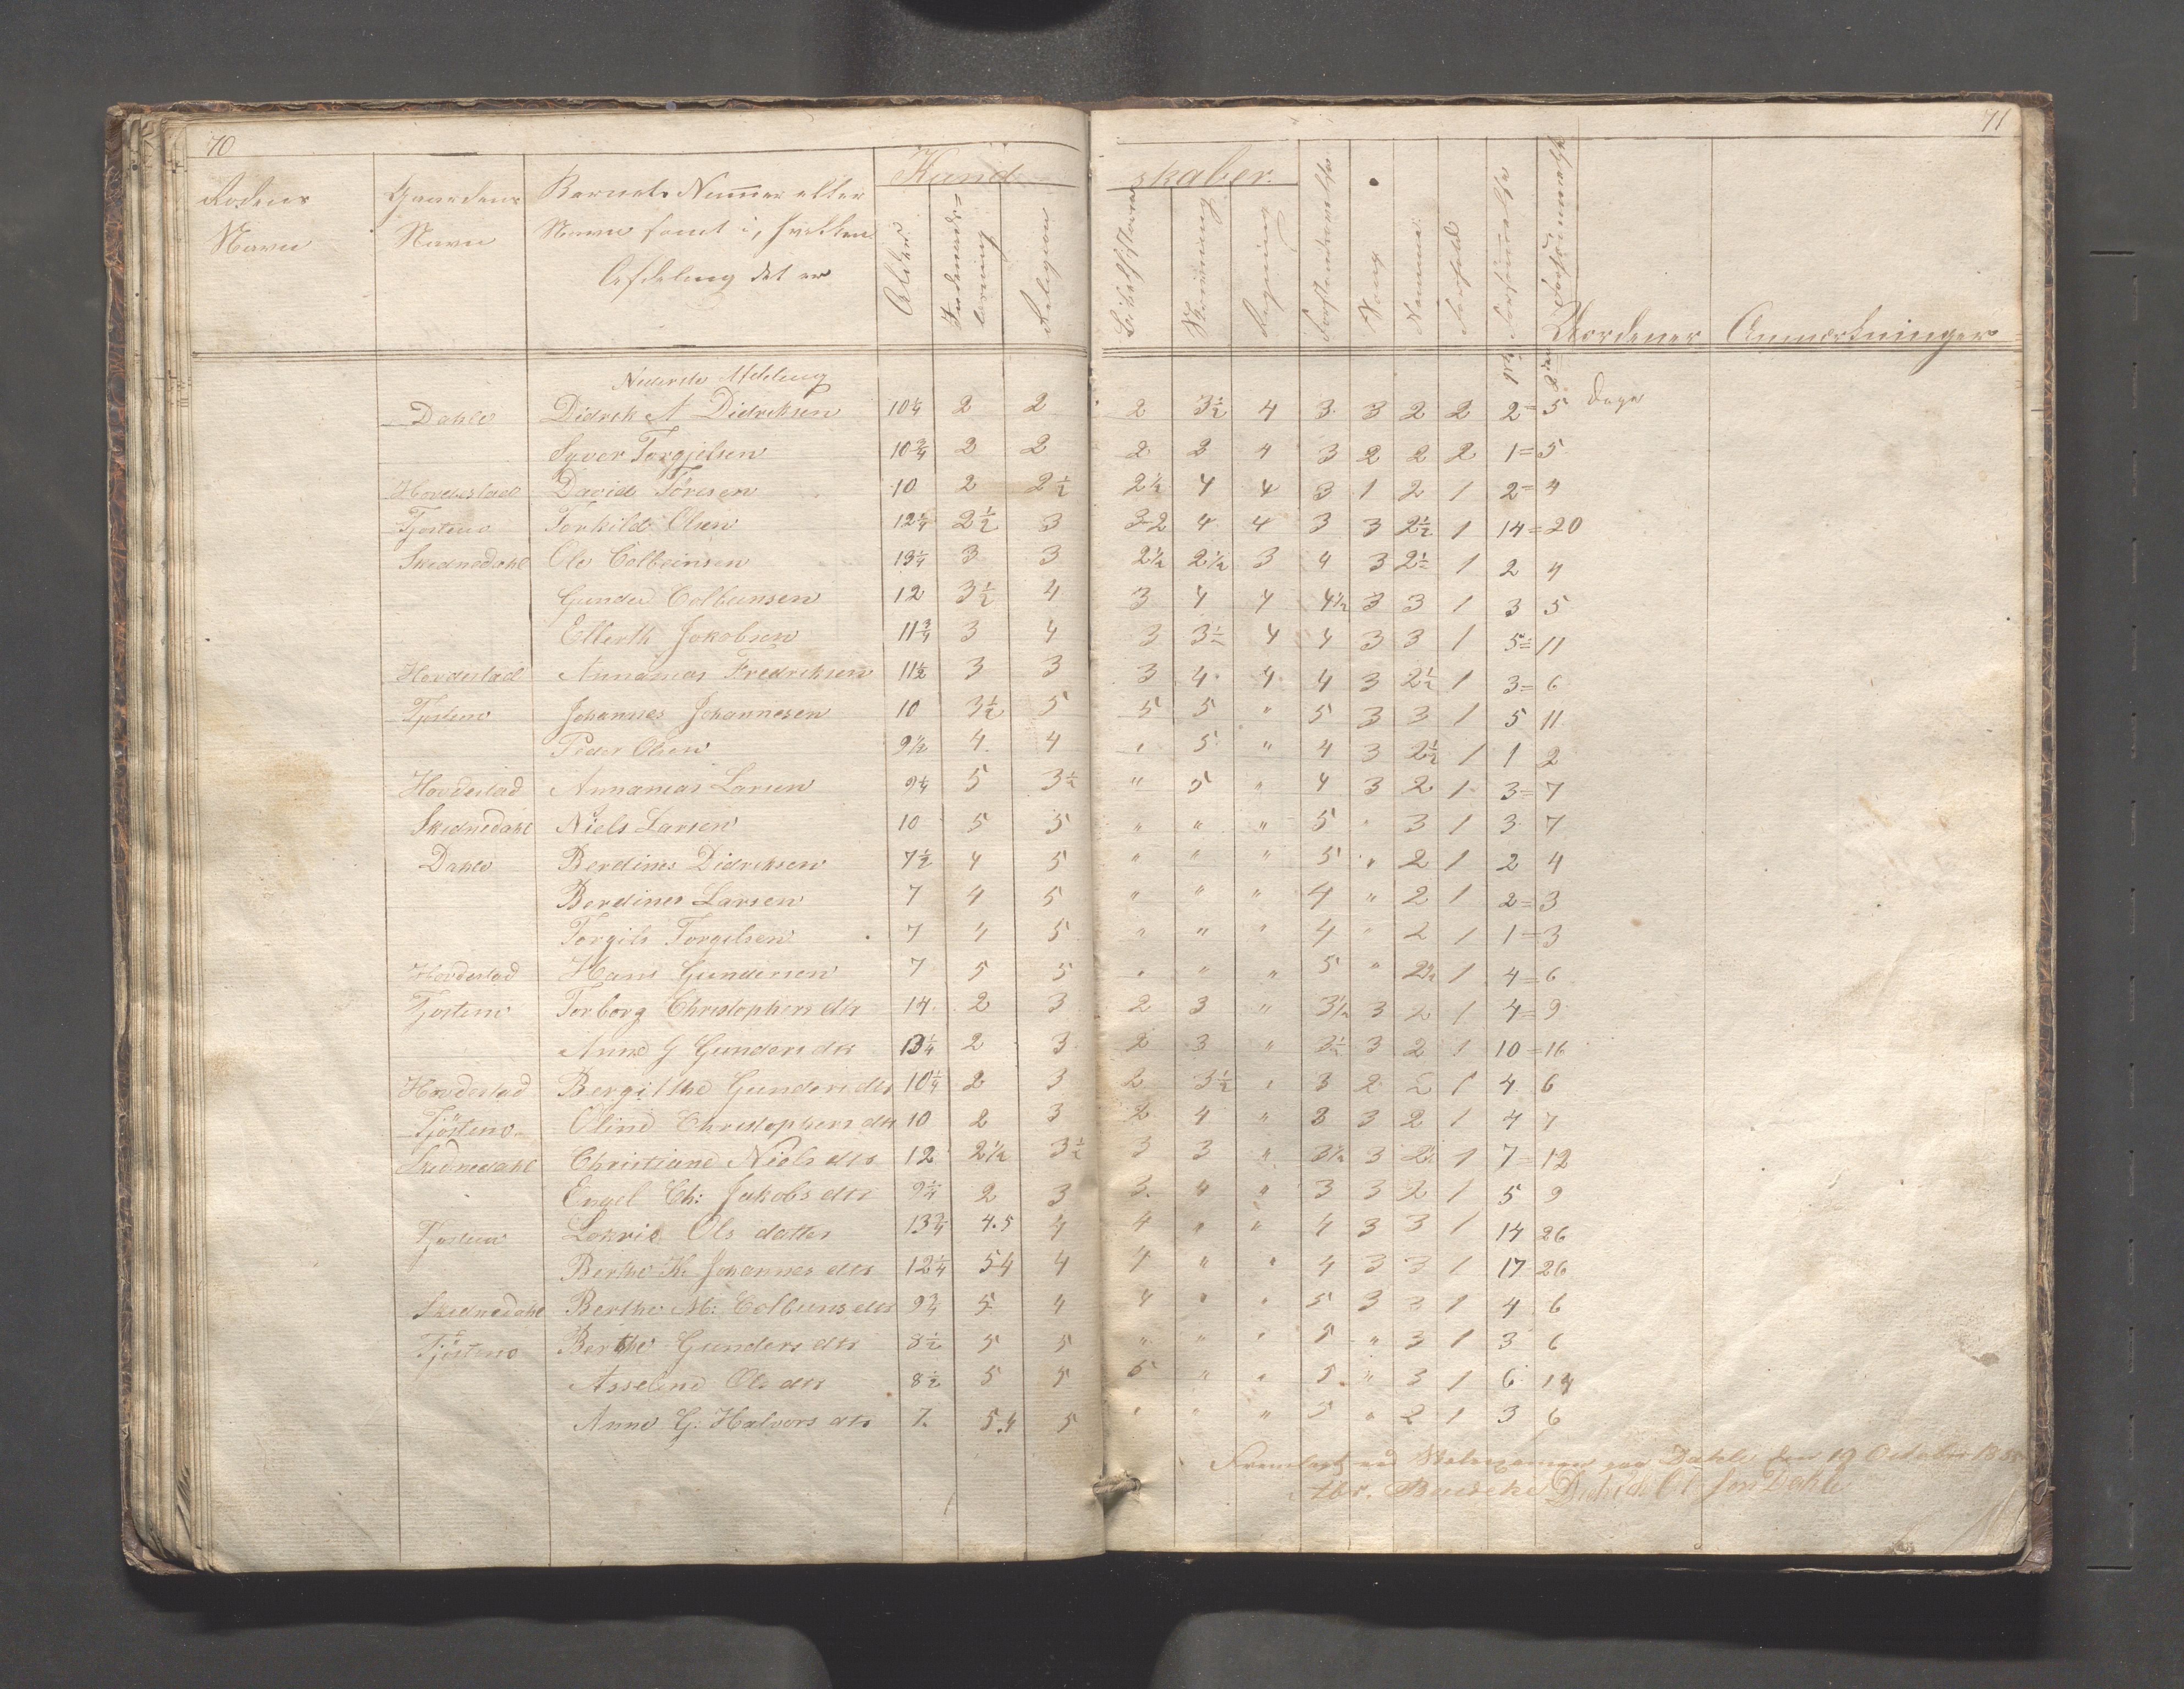 70
71
Rodens Navn
Gaardens Navn
Barnets Nummer eller Navn samt i, hvilken Afdeling det er
Kund skaber.
Alder
Indenadslæsning
Religion
Bibelhistorie
Skrivning
Regning
Forstandsøvelse
Sang
Nemme
Forhold
Forsømmelse
Forsømmelse
Uordener
Anmærkninger
Nederste Afdeling
Dahle Didrik A Didriksen 10¼ 2 2 2 3½ 4 3 3 2 2 2= 5 Dage
Syver Torgjelsen 10¾ 2 2 2 3 4 3 2 2 2 1= 5
Hovdestad David Töresen 10 2 2½ 2½ 4 4 3 1 2 1 2= 4
Tjosteno Torkild Olsen 12¼ 2½ 3 3-2 4 4 3 3 2½ 1 14= 20
Skednedahl Ole Colbeinsen 13¼ 3 3 2½ 2½ 3 4 3 2½ 1 2 4
Gunder Colbeinsen 12 3½ 4 3 4 4 4½ 3 3 1 3 5
Ellerth Jakobsen 11¾ 3 4 3 3½ 4 4 3 3 1 5= 11
Hovdestad Annanias Fredriksen 11½ 3 3 3 4 4 4 3 2½ 1 3= 6
Tjosteno Johannes Johannesen 10 3½ 5 5 5 " 5 3 3 1 5 11
Peder Olsen 9½ 4 4 " 5 " 4 3 2½ 1 1 2
Hovdestad Annanias Larsen 9¼ 5 3½ " 5 " 4 3 2 1 3= 7
Skednedahl Niels Larsen 10 5 5 " " " 5 " 3 1 3 7
Dahle Berdines Didriksen 7½ 4 5 " " " 5 " 2 1 2 4
Berdines Larsen 7 4 5 " " " 4 " 2 1 2= 3
Torgils Torgilsen 7 4 5 " " " 4 " 2 1 1= 3
Hovdestad Hans Gundersen 7 5 5 " " " 5 " 2½ 1 4= 6
Tjosteno Torborg Christophers dtr 14 2 3 2 3 " 3½ 3 2 1 4= 9
Anne G Gunders dtr 13¼ 2 3 2 3 " 3½ 3 2 1 10= 16
Hovdestad Bergitthe Gunders dtr 10¼ 2 3 2 3½ " 3 2 2 1 4 6
Tjösteno Oline Christophers dtr 10 2 3 2 4 " 3 3 2 1 4 7
Skednedahl Christiane Niels dtr 12 2½ 3½ 3 3 " 3½ 3 2½ 1 7 12
Engel Ch: Jakobs dtr 9¼ 2 3 3 4 " 3 3 2 1 5 9
Tjosteno Lokris Ols datter 13¾ 4.5 4 4 " " 4 3 3 1 14 26
Berthe K. Johannes dtr 12¼ 5-4 4 4 " " 4 3 3 1 17 26
Skednedahl Berthe M: Colbeins dtr 9¾ 5 4 4 " " 5 3 3 1 4 6
Tjösteno Berthe Gunders dtr 8½ 5 5 " " " 5 " 3 1 3 6
Asseline Ols dtr 8½ 5 5 5 " " 5 " 3 1 6 14
Anne G. Halvors dtr 7. 5.4 5 " " " 5 " 2 1 3 6
Fremlagt ved Skolexamen paa Dahle den 19 October
Abr. Didrik Dahle